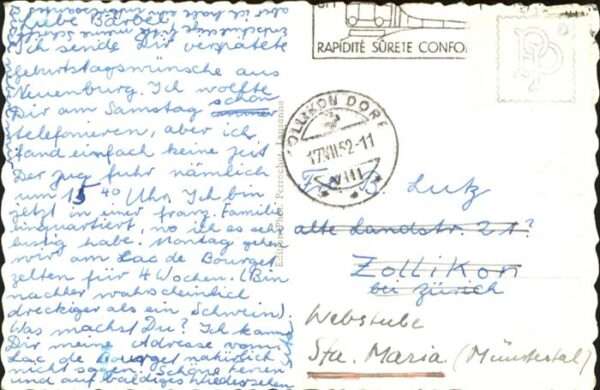 Liebe Bärbel
Ich sende Dir verspätete
Geburtstagswünsche aus
Neuenburg. Ich wollte
Dir am Samstag schon
telefonieren, aber ich
fand einfach keine Zeit
Der Zug fuhr nämlich
um 15 40 Uhr. Ich bin
jetzt in einer franz. Familie
einquartiert, wo ich es sehr
lustig habe. Montag gehen
wir am Lac de Bourget
zelten für 4 Wochen. (Bin
nachher wahrscheinlich
dreckiger als ein Schwein).
Was machst Du? Ich kann
Dir meine Adresse vom
Lac de Bourget natürlich
nicht sagen. Schöne Ferien
und auf baldiges Wiedersehen
RAPIDITÉ SÛRETÉ CONFO
ZOLLIKON DORF
17.VII.52-11
VIII
B. Lutz
alte Landstr. 21?
Zollikon
bei Zürich
Webstube
Sta. Maria (Münstertal)
Perrochet, Lausanne